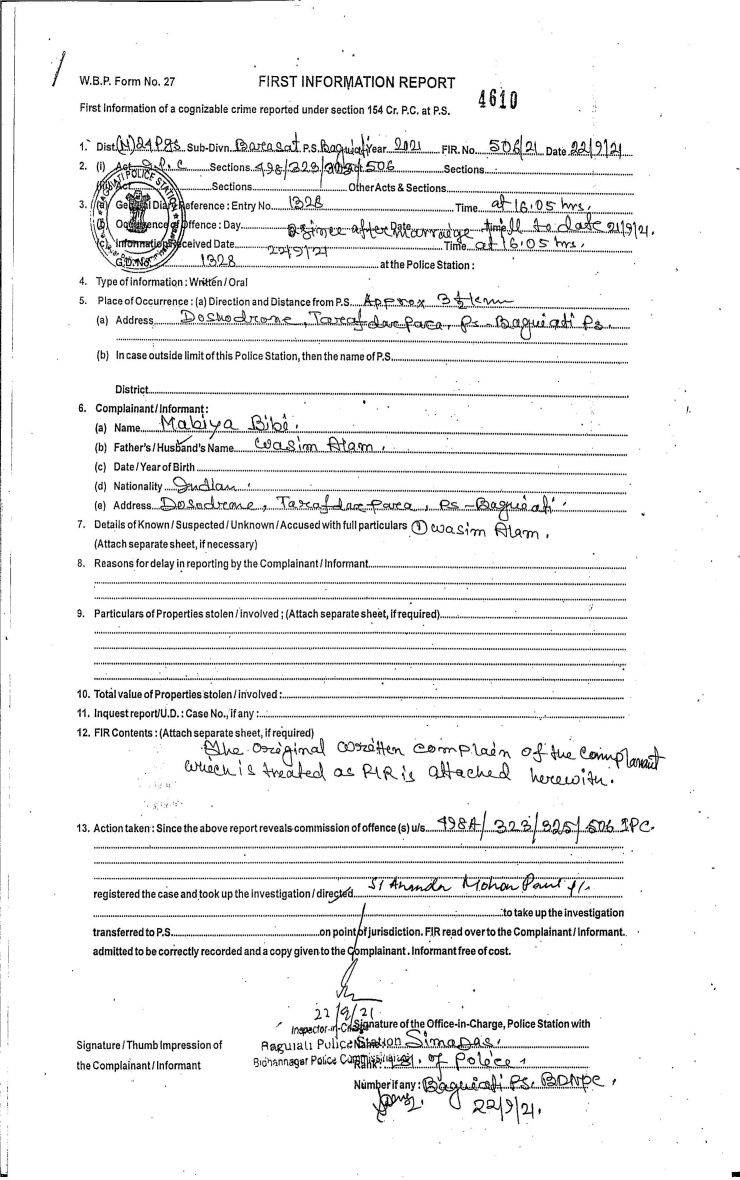 W.B.P. Form No. 27
FIRST INFORMATION REPORT
4610
First Information of a cognizable crime reported under section 154 Cr. P.C. at P.S.
1. Dist. (N) 24 Pgs Sub-Divn. Barasat P.S. Baguiati Year 2021 FIR. No. 506/21 Date 22/9/21
2. (i) Act I.P.C Sections 498/323/325/506 Sections
Act Sections Other Acts & Sections
3. (a) General Diary Reference : Entry No. 1328 Time at 16:05 hrs.
(b) Occurence of Offence : Day Date Since after Marriage Time till to date 21/9/21.
(c) Information Received Date 22/9/21 Time at 16:05 hrs.
G.D. No. 1328 at the Police Station :
4. Type of Information : Written / Oral
5. Place of Occurrence : (a) Direction and Distance from P.S. Approx 3½ km
(a) Address Doshodrone, Tarafdarpara, Ps- Baguiati Ps.
(b) In case outside limit of this Police Station, then the name of P.S.
District
6. Complainant / Informant :
(a) Name Mabiya Bibi.
(b) Father's / Husband's Name Wasim Alam.
(c) Date / Year of Birth
(d) Nationality Indian.
(e) Address Dosodrone, Tarafdarpara, Ps-Baguiati.
7. Details of Known / Suspected / Unknown / Accused with full particulars ① Wasim Alam.
(Attach separate sheet, if necessary)
8. Reasons for delay in reporting by the Complainant / Informant
9. Particulars of Properties stolen / involved ; (Attach separate sheet, if required)
10. Total value of Properties stolen / involved :
11. Inquest report/U.D. : Case No., if any :
12. FIR Contents : (Attach separate sheet, if required)
The original written complain of the complanant
which is treated as FIR is attached herewith.
13. Action taken : Since the above report reveals commission of offence (s) u/s 498A/323/325/506 IPC.
registered the case and took up the investigation / directed SI Ananda Mohan Paul
to take up the investigation
transferred to P.S. on point of jurisdiction. FIR read over to the Complainant / Informant.
admitted to be correctly recorded and a copy given to the Complainant. Informant free of cost.
22/9/21
Inspector-in-Charge Signature of the Office-in-Charge, Police Station with
Signature / Thumb Impression of
Baguiati Police Station
the Complainant / Informant
Bidhannagar Police Commissionerate of Police,
Number if any : Baguiati Ps. BDNPC,
22/9/21.